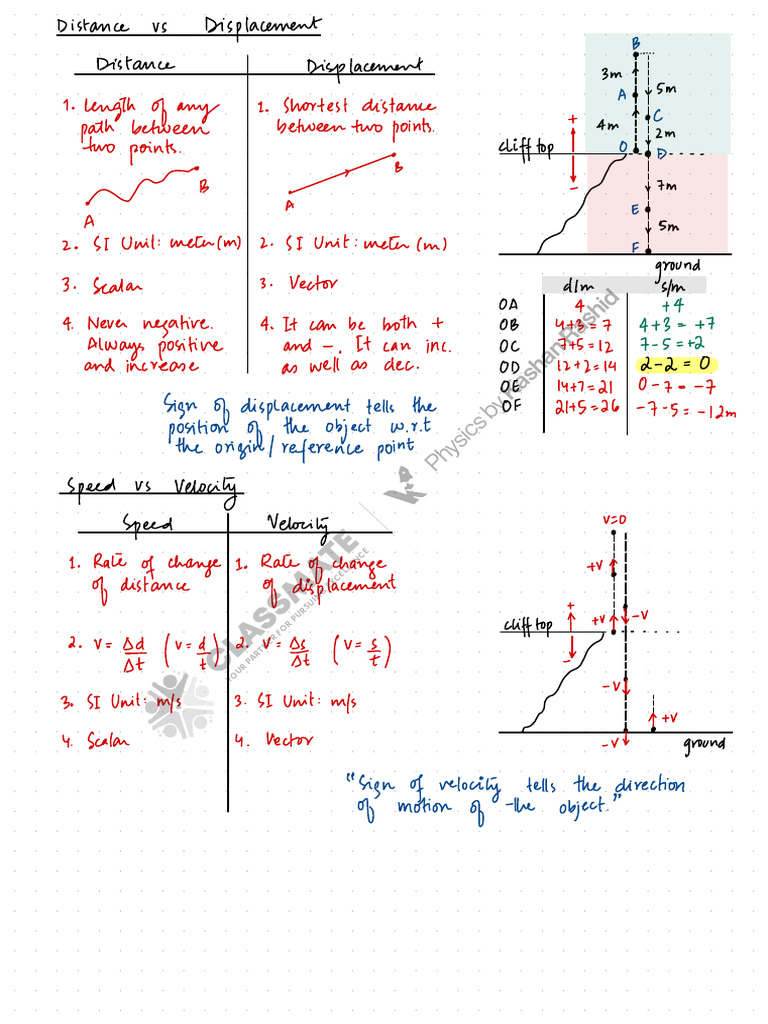 Distance vs Displacement
Distance
1. Length of any
path between
two points.
A
B
2. SI Unit: meter(m)
3. Scalar
4. Never negative.
Always positive
and increase
Displacement
1. Shortest distance
between two points.
A
B
2. SI Unit: meter (m)
3. Vector
4. It can be both +
and -. It can inc.
as well as dec.
Sign of displacement tells the
position of the object w.r.t
the origin/reference point
B
3m
5m
A
C
4m
2m
+
-
cliff top
O
D
7m
E
5m
F
ground
d/m s/m
OA 4 +4
OB 4+3 = 7 4+3 = +7
OC 7+5 = 12 7-5 = +2
OD 12+2 = 14 2-2 = 0
OE 14+7 = 21 0-7 = -7
OF 21+5 = 26 -7-5 = -12m
Physics by Kashan Rashid
CLASSMATE
YOUR PARTNER FOR PURSUING EXCELLENCE
Speed vs Velocity
Speed
1. Rate of change
of distance
2. V = Δd/Δt (v = d/t)
3. SI Unit: m/s
4. Scalar
Velocity
1. Rate of change
of displacement
2. V = Δs/Δt (v = s/t)
3. SI Unit: m/s
4. Vector
V=0
+V
+
-
cliff top
+V
-V
-V
+V
-V
ground
"Sign of velocity tells the direction
of motion of the object."